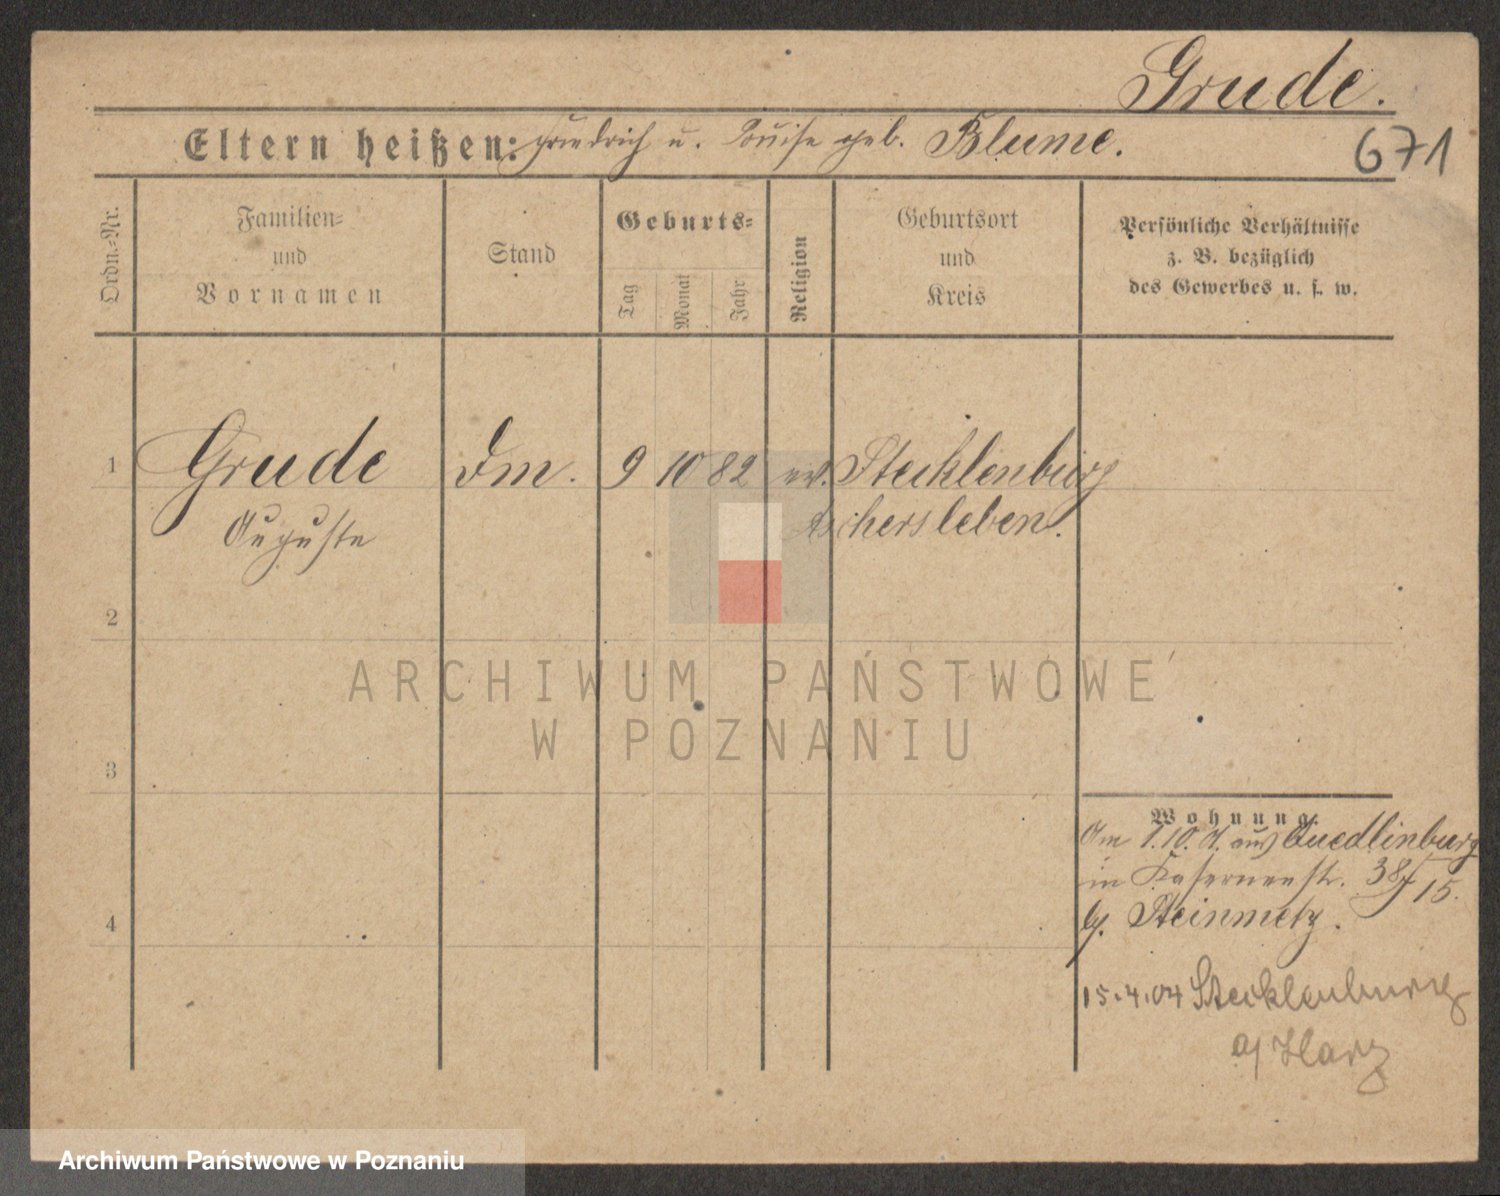 Grude.
Eltern heißen: Friedrich u. Luise geb. Blume.
671
Ordn.=Nr.
Familien=
und
Vornamen
Stand
Geburts=
Tag
Monat
Jahr
Religion
Geburtsort
und
Kreis
Persönliche Verhältnisse
z. B. bezüglich
des Gewerbes u. s. w.
1
Grude
Dm.
9 10 82
ev.
Stecklenburg
Auguste
Aschersleben.
2
ARCHIWUM PAŃSTWOWE
W POZNANIU
3
Wohnung.
Am 1.10. aus Quedlinburg
in Kasernenstr. 38 15.
b. Steinmetz.
4
15.4.04 Stecklenburg
a/Harz
Archiwum Państwowe w Poznaniu